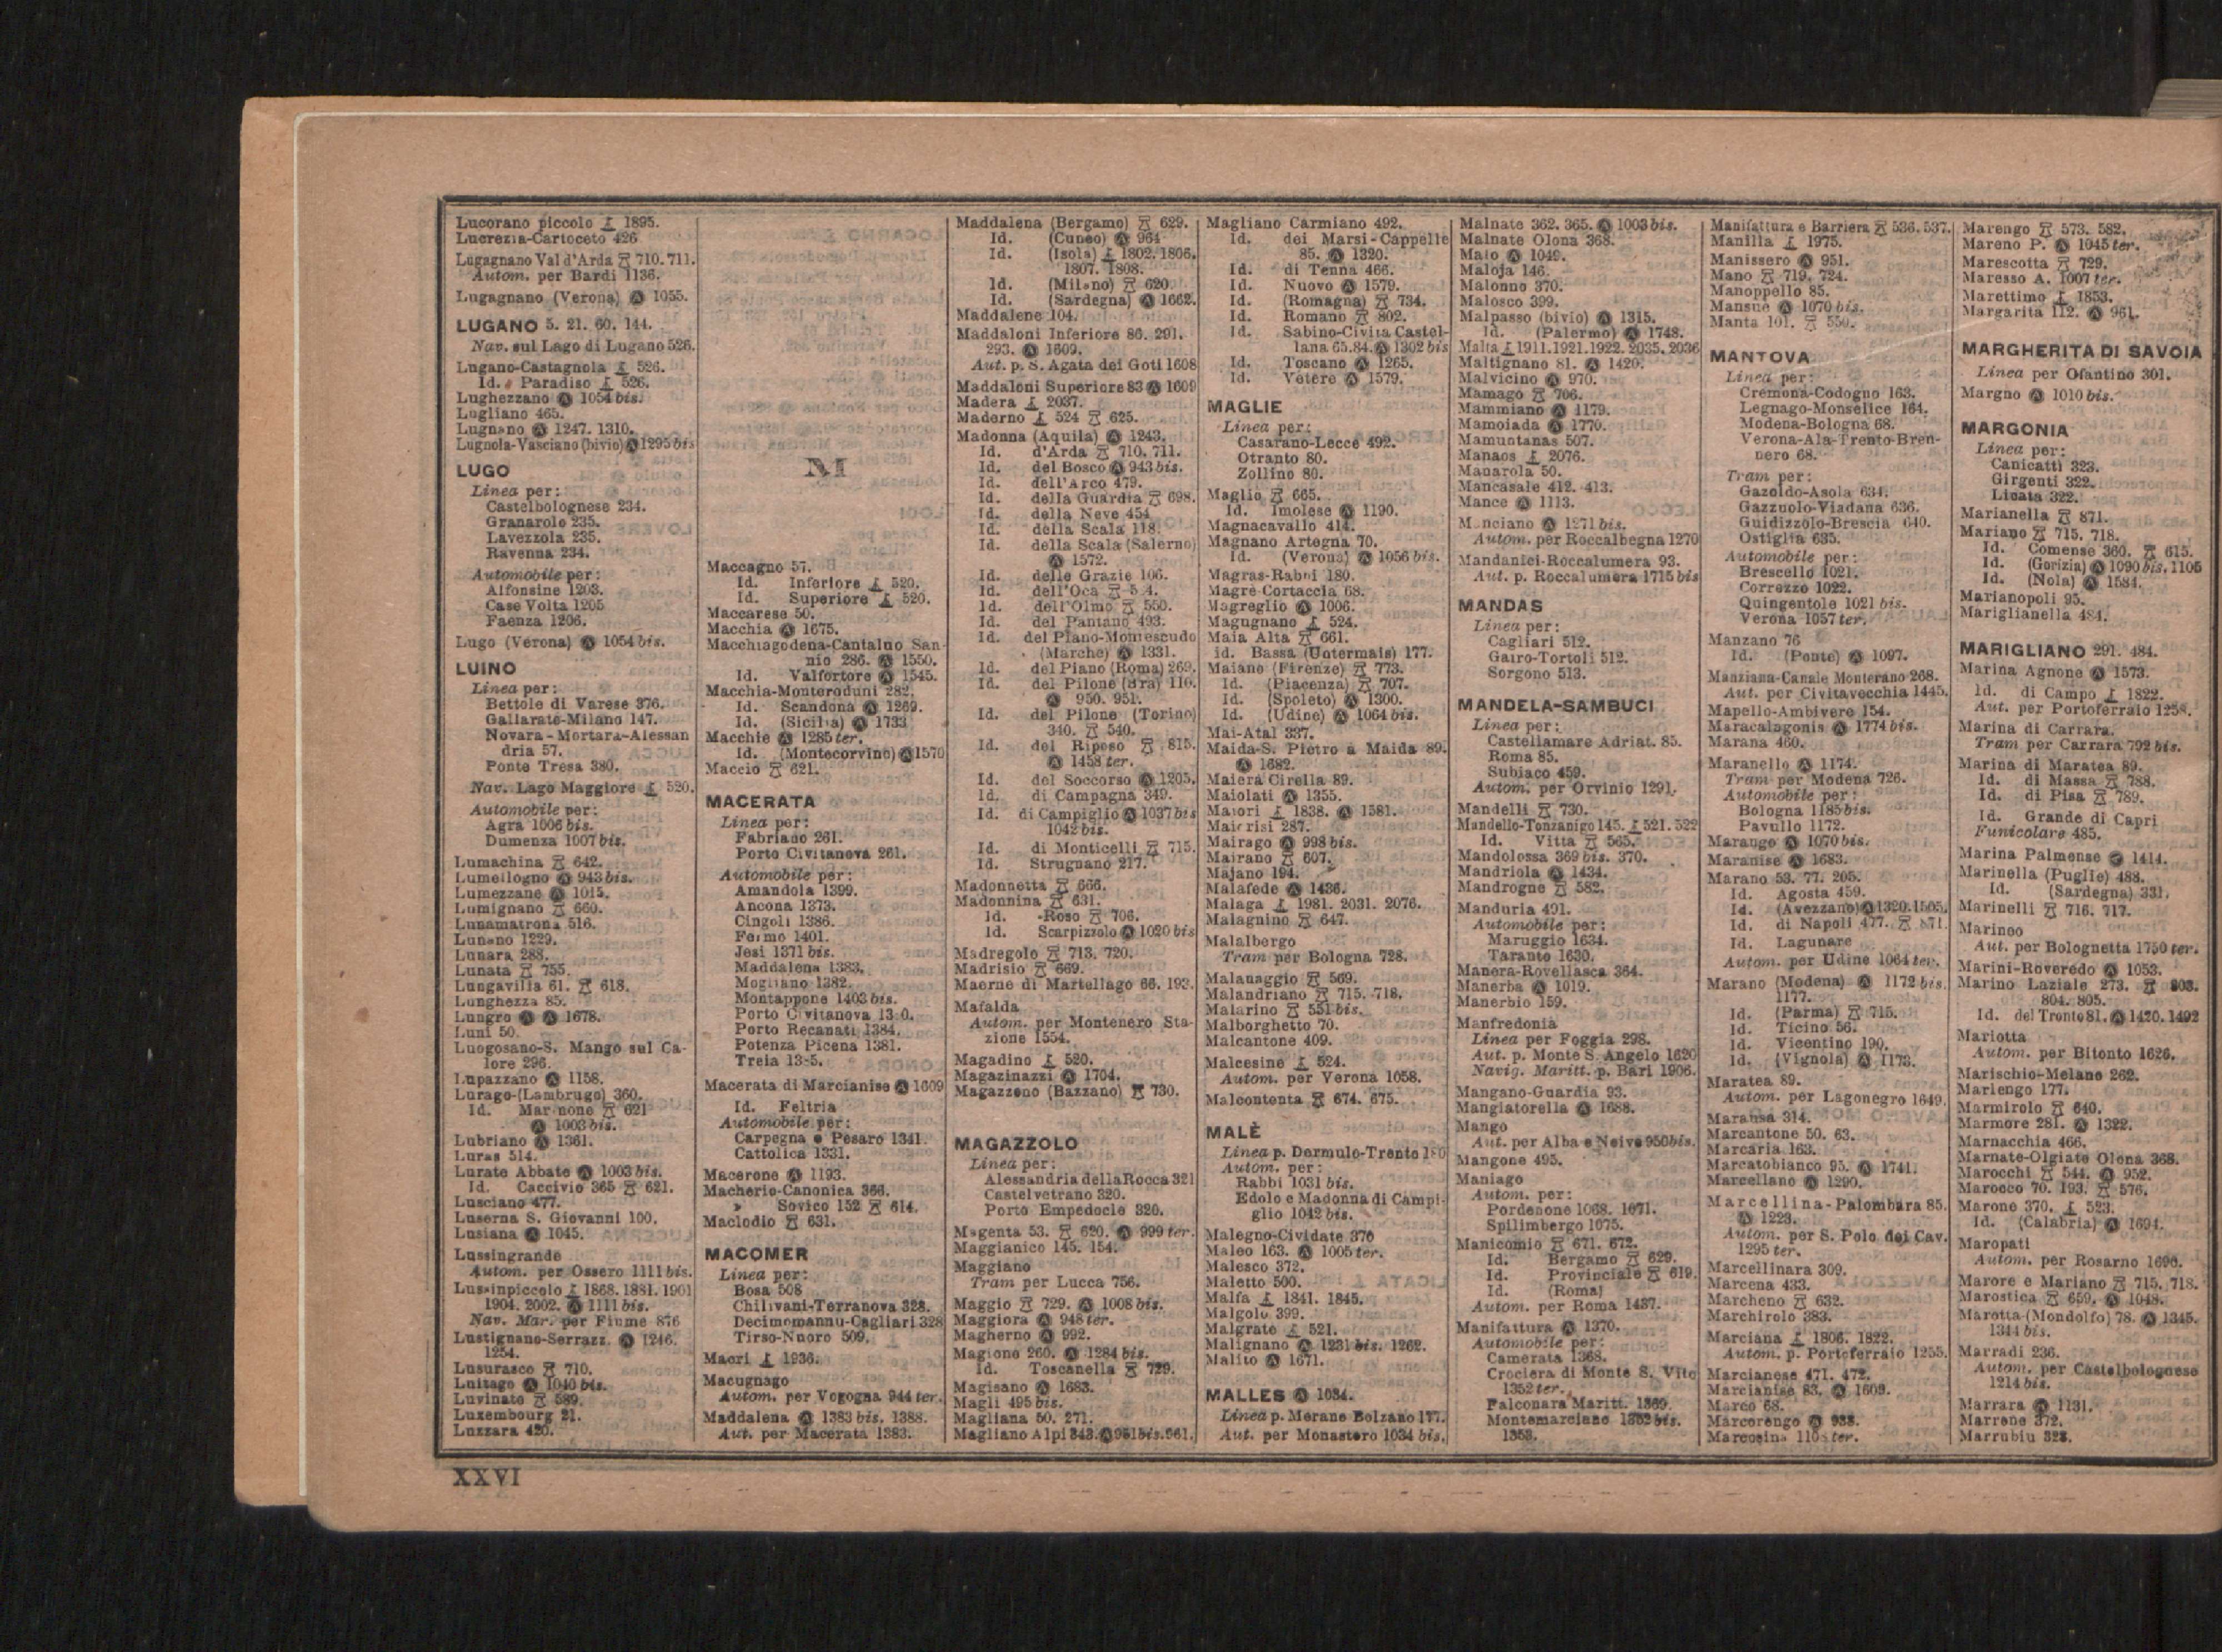 Lucorano piccolo 1895.
Lucrezia-Cartoceto 426
Lugagnano Val d'Arda 710. 711.
Autom. per Bardi 1136.
Lugagnano (Verona) A 1055.
LUGANO 5. 21. 60. 144.
Nav. sul Lago di Lugano 526.
Lugano-Castagnola 526.
Id. Paradiso 526.
Lughezzano A 1054 bis.
Lugliano 465.
Lugnano A 1247. 1310.
Lugnola-Vasciano (bivio) A 1295 bis
LUGO
Linea per:
Castelbolognese 234.
Granarolo 235.
Lavezzola 235.
Ravenna 234.
Automobile per:
Alfonsine 1203.
Case Volta 1205
Faenza 1206.
Lugo (Verona) A 1054 bis.
LUINO
Linea per:
Bettole di Varese 376.
Gallarate-Milano 147.
Novara-Mortara-Alessan
dria 57.
Ponte Tresa 380.
Nav. Lago Maggiore 520.
Automobile per:
Agra 1006 bis.
Dumenza 1007 bis.
Lumachina 642.
Lumellogno A 943 bis.
Lumezzane A 1015.
Lumignano 660.
Lunamatrona 516.
Lunano 1229.
Lunara 288.
Lunata 755.
Lungavilla 61. 618.
Lunghezza 85.
Lungro A A 1678.
Luni 50.
Luogosano-S. Mango sul Ca-
lore 296.
Lupazzano A 1158.
Lurago-(Lambrugo) 360.
Id. Marinone 621
A 1003 bis.
Lubriano A 1361.
Luras 514.
Lurate Abbate A 1003 bis.
Id. Caccivio 365 621.
Lusciano 477.
Luserna S. Giovanni 100.
Lusiana A 1045.
Lussingrande
Autom. per Ossero 1111 bis.
Lussinpiccolo 1868. 1881. 1901
1904. 2002. A 1111 bis.
Nav. Mar. per Fiume 876
Lustignano-Serrazz. A 1246.
1254.
Lusurasco 710.
Lutago A 1040 bis.
Luvinate 589.
Luxembourg 21.
Luzzara 420.
M
Maccagno 57.
Id. Inferiore 520.
Id. Superiore 520.
Maccarese 50.
Macchia A 1675.
Macchiagodena-Cantalup San-
nio 286. A 1550.
Id. Valfortore A 1545.
Macchia-Monteroduni 282.
Id. Scandona A 1269.
Id. (Sicilia) A 1733
Macchie A 1285 ter.
Id. (Montecorvino) A 1570
Maccio 621.
MACERATA
Linea per:
Fabriano 261.
Porto Civitanova 261.
Automobile per:
Amandola 1399.
Ancona 1373.
Cingoli 1386.
Fermo 1401.
Jesi 1371 bis.
Maddalena 1383.
Mogliano 1382.
Montappone 1403 bis.
Porto Civitanova
Porto Recanati 1384.
Potenza Picena 1381.
Treia
Macerata di Marcianise A 1609
Id. Feltria
Automobile per:
Carpegna e Pesaro 1341.
Cattolica 1331.
Macerone A 1193.
Macherio-Canonica 366.
» Sovico 152 614.
Maclodio 631.
MACOMER
Linea per:
Bosa 508
Chilivani-Terranova 328.
Decimomannu-Cagliari 328
Tirso-Nuoro 509.
Macri 1936.
Macugnago
Autom. per Vogogna 944 ter.
Maddalena A 1383 bis. 1388.
Aut. per Macerata 1383.
Maddalena (Bergamo) 629.
Id. (Cuneo) A 964
Id. (Isola) 1802. 1806.
1807. 1808.
Id. (Milano) 620.
Id. (Sardegna) A 1662.
Maddalene 104.
Maddaloni Inferiore 86. 291.
293. A 1609.
Aut. p. S. Agata dei Goti 1608
Maddaloni Superiore 83 A 1609
Madera 2037.
Maderno 524 625.
Madonna (Aquila) A 1243.
Id. d'Arda 710. 711.
Id. del Bosco A 943 bis.
Id. dell'Arco 479.
Id. della Guardia 698.
Id. della Neve 454
Id. della Scala 118.
Id. della Scala (Salerno)
A 1572.
Id. delle Grazie 106.
Id. dell'Oca
Id. dell'Olmo 550.
Id. del Pantano 493.
Id. del Piano-Montescudo
(Marche) A 1331.
Id. del Piano (Roma) 269.
Id. del Pilone (Bra) 110.
A 950. 951.
Id. del Pilone (Torino)
340. 540.
Id. del Riposo 815.
A 1458 ter.
Id. del Soccorso A 1205.
Id. di Campagna 349.
Id. di Campiglio A 1037 bis
1042 bis.
Id. di Monticelli 715.
Id. Strugnano 217.
Madonnetta 666.
Madonnina 631.
Id. Roso 706.
Id. Scarpizzolo A 1020 bis
Madregolo 713. 720.
Madrisio 669.
Maerne di Martellago 66. 193.
Mafalda
Autom. per Montenero Sta-
zione 1554.
Magadino 520.
Magazinazzi A 1704.
Magazzeno (Bazzano) 730.
MAGAZZOLO
Linea per:
Alessandria della Rocca 321
Castelvetrano 320.
Porto Empedocle 320.
Magenta 53. 620. A 999 ter.
Maggianico 145. 154.
Maggiano
Tram per Lucca 756.
Maggio 729. A 1008 bis.
Maggiora A 948 ter.
Magherno A 992.
Magione 260. A 1284 bis.
Id. Toscanella 729.
Magisano A 1683.
Magli 495 bis.
Magliana 50. 271.
Magliano Alpi 343. A 951 bis. 961.
Magliano Carmiano 492.
Id. dei Marsi-Cappelle
85. A 1320.
Id. di Tenna 466.
Id. Nuovo A 1579.
Id. (Romagna) 734.
Id. Romano 802.
Id. Sabino-Civita Castel-
lana 65. 84. A 1302 bis
Id. Toscano A 1265.
Id. Vetere A 1579.
MAGLIE
Linea per:
Casarano-Lecce 492.
Otranto 80.
Zollino 80.
Maglio 665.
Id. Imolese A 1190.
Magnacavallo 414.
Magnano Artegna 70.
Id. (Verona) A 1056 bis.
Magras-Rabbi 180.
Magrè-Cortaccia 68.
Magreglio A 1006.
Magugnano 524.
Maia Alta 661.
id. Bassa (Untermais) 177.
Maiano (Firenze) 773.
Id. (Piacenza) 707.
Id. (Spoleto) A 1300.
Id. (Udine) A 1064 bis.
Mai-Atal 337.
Maida-S. Pietro a Maida 89.
A 1682.
Maierà Cirella 89.
Maiolati A 1355.
Maiori 1838. A 1581.
Maiorisi 287.
Mairago A 998 bis.
Mairano 607.
Majano 194.
Malafede A 1436.
Malaga 1981. 2031. 2076.
Malagnino 647.
Malalbergo
Tram per Bologna 728.
Malanaggio 569.
Malandriano 715. 718.
Malarino 551 bis.
Malborghetto 70.
Malcantone 409.
Malcesine 524.
Autom. per Verona 1058.
Malcontenta 674. 675.
MALÈ
Linea p. Dermulo-Trento 180
Autom. per:
Rabbi 1031 bis.
Edolo e Madonna di Campi-
glio 1042 bis.
Malegno-Cividate 370
Maleo 163. A 1005 ter.
Malesco 372.
Maletto 500.
Malfa 1841. 1845.
Malgolo 399.
Malgrate 521.
Malignano A 1231 bis. 1262.
Malito A 1671.
MALLES A 1034.
Linea p. Merano Bolzano 177.
Aut. per Monastero 1034 bis.
Malnate 362. 365. A 1003 bis.
Malnate Olona 368.
Malo A 1049.
Maloja 146.
Malonno 370.
Malosco 399.
Malpasso (bivio) A 1315.
Id. (Palermo) A 1748.
Malta 1911. 1921. 1922. 2035. 2036
Maltignano 81. A 1420.
Malvicino A 970.
Mamago 706.
Mammiano A 1179.
Mamoiada A 1770.
Mamuntanas 507.
Manaos 2076.
Manarola 50.
Mancasale 412. 413.
Mance A 1113.
Manciano A 1271 bis.
Autom. per Roccalbegna 1270
Mandanici-Roccalumera 93.
Aut. p. Roccalumera 1715 bis
MANDAS
Linea per:
Cagliari 512.
Gairo-Tortolì 512.
Sorgono 513.
MANDELA-SAMBUCI
Linea per:
Castellamare Adriat. 85.
Roma 85.
Subiaco 459.
Autom. per Orvinio 1291.
Mandelli 730.
Mandello-Tonzanigo 145. 521. 522
Id. Vitta 565.
Mandolossa 369 bis. 370.
Mandriola A 1434.
Mandrogne 582.
Manduria 491.
Automobile per:
Maruggio 1634.
Taranto 1630.
Manera-Rovellasca 364.
Manerba A 1019.
Manerbio 159.
Manfredonia
Linea per Foggia 298.
Aut. p. Monte S. Angelo 1620
Navig. Maritt. p. Bari 1906.
Mangano-Guardia 93.
Mangiatorella A 1688.
Mango
Aut. per Alba e Neive 950 bis.
Mangone 495.
Maniago
Autom. per:
Pordenone 1068. 1071.
Spilimbergo 1075.
Manicomio 671. 672.
Id. Bergamo 629.
Id. Provinciale 619.
Id. (Roma)
Autom. per Roma 1437.
Manifattura A 1370.
Automobile per:
Camerata 1368.
Crociera di Monte S. Vito
1352 ter.
Falconara Maritt. 1369.
Montemarciano 1352 bis.
1353.
Manifattura e Barriera 536. 537.
Manilla 1975.
Manissero A 951.
Mano 719. 724.
Manoppello 85.
Mansuè A 1070 bis.
Manta 101. 550.
MANTOVA
Linea per:
Cremona-Codogno 163.
Legnago-Monselice 164.
Modena-Bologna 68.
Verona-Ala-Trento-Bren-
nero 68.
Tram per:
Gazoldo-Asola 634.
Gazzuolo-Viadana 636.
Guidizzolo-Brescia 640.
Ostiglia 635.
Automobile per:
Brescello 1021.
Correzzo 1022.
Quingentole 1021 bis.
Verona 1057 ter.
Manzano 76
Id. (Ponte) A 1097.
Manziana-Canale Monterano 268.
Aut. per Civitavecchia 1445.
Mapello-Ambivere 154.
Maracalagonis A 1774 bis.
Marana 460.
Maranello A 1174.
Tram per Modena 726.
Automobile per:
Bologna 1185 bis.
Pavullo 1172.
Marango A 1070 bis.
Maranise A 1683.
Marano 53. 77. 205.
Id. Agosta 459.
Id. (Avezzano) A 1320. 1505.
Id. di Napoli 477. 871.
Id. Lagunare
Autom. per Udine 1064 ter.
Marano (Modena) A 1172 bis.
1177.
Id. (Parma) 715.
Id. Ticino 56.
Id. Vicentino 190.
Id. (Vignola) A 1173.
Maratea 89.
Autom. per Lagonegro 1649.
Marausa 314.
Marcantone 50. 63.
Marcaria 163.
Marcatobianco 95. A 1741.
Marcellano A 1290.
Marcellina-Palombara 85.
A 1223.
Autom. per S. Polo dei Cav.
1295 ter.
Marcellinara 309.
Marcena 433.
Marcheno 632.
Marchirolo 383.
Marciana 1806. 1822.
Autom. p. Portoferraio 1255.
Marcianese 471. 472.
Marcianise 83. A 1609.
Marco 68.
Marcorengo A 938.
Marcosina ter.
Marengo 573. 582.
Mareno P. A 1045 ter.
Marescotta 729.
Maresso A. 1007 ter.
Marettimo 1853.
Margarita 112. A 961.
MARGHERITA DI SAVOIA
Linea per Ofantino 301.
Margno A 1010 bis.
MARGONIA
Linea per:
Canicattì 323.
Girgenti 322.
Licata 322.
Marianella 871.
Mariano 715. 718.
Id. Comense 360. 615.
Id. (Gorizia) A 1090 bis. 1105
Id. (Nola) A 1584.
Marianopoli 95.
Mariglianella 484.
MARIGLIANO 291. 484.
Marina Agnone A 1573.
Id. di Campo 1822.
Aut. per Portoferraio 1258.
Marina di Carrara.
Tram per Carrara 792 bis.
Marina di Maratea 89.
Id. di Massa 788.
Id. di Pisa 789.
Id. Grande di Capri
Funicolare 485.
Marina Palmense 1414.
Marinella (Puglie) 488.
Id. (Sardegna) 331.
Marinelli 716. 717.
Marineo
Aut. per Bolognetta 1750 ter.
Marini-Roveredo A 1053.
Marino Laziale 273. 803.
804. 805.
Id. del Tronto 81. A 1420. 1492
Mariotta
Autom. per Bitonto 1626.
Marischio-Melano 262.
Marlengo 177.
Marmirolo 640.
Marmore 281. A 1322.
Marnacchia 466.
Marnate-Olgiate Olona 368.
Marocchi 544. A 952.
Marocco 70. 193. 576.
Marone 370. 523.
Id. (Calabria) A 1694.
Maropati
Autom. per Rosarno 1696.
Marore e Mariano 715. 718.
Marostica 659. A 1048.
Marotta-(Mondolfo) 78. A 1345.
1344 bis.
Marradi 236.
Autom. per Castelbolognese
1214 bis.
Marrara A 1131.
Marrone 372.
Marrubiu 328.
XXVI